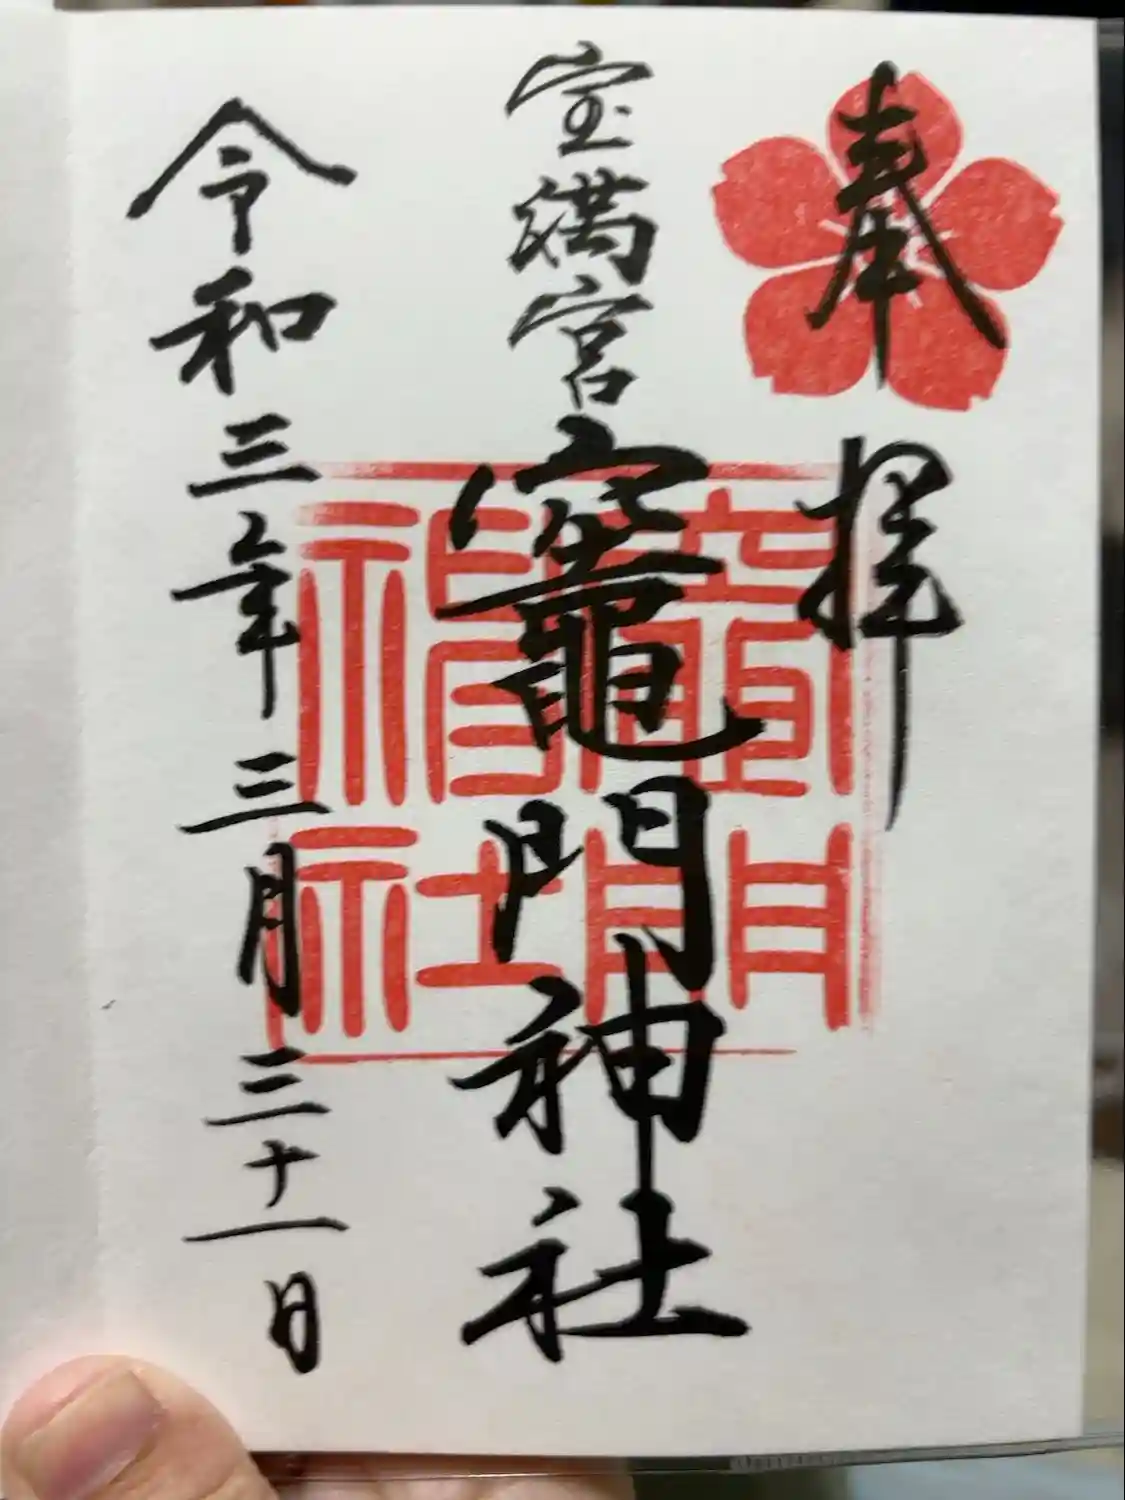 奉拝
宝満宮竈門神社
令和三年三月三十一日
竈門
神社